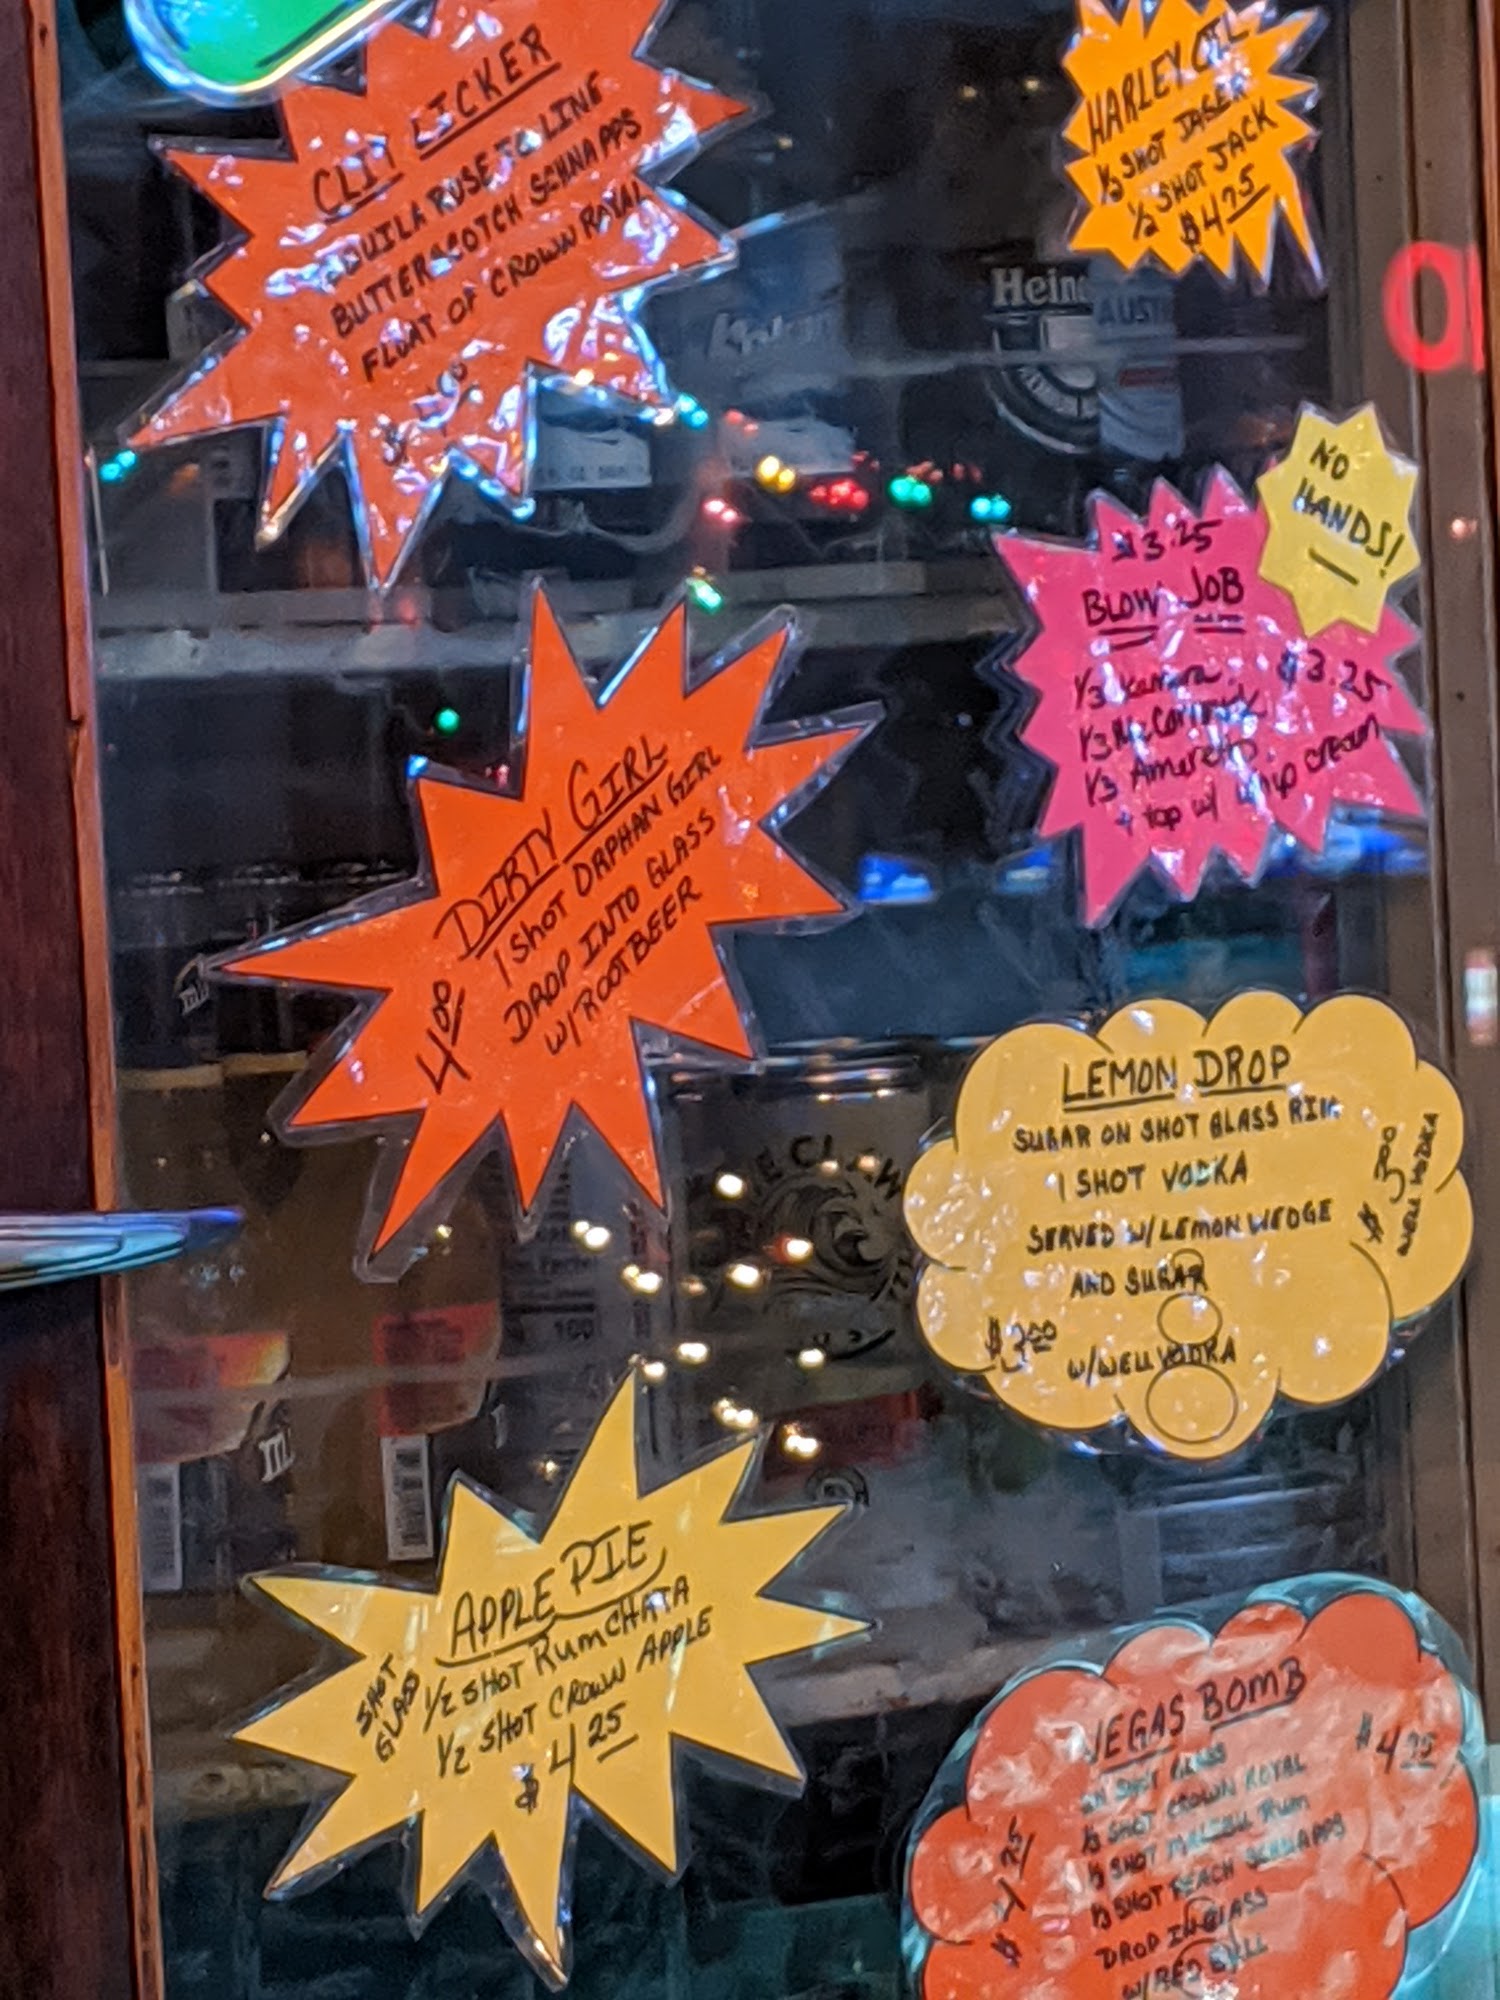 CLIT LICKER
TEQUILA ROSE TO LINE
BUTTERSCOTCH SCHNAPPS
FLOAT OF CROWN ROYAL
HARLEY OIL
1/2 SHOT JAGER
1/2 SHOT JACK
$4.75
Heine
AUST
NO
HANDS!
$3.25
BLOW JOB
1/3 Kahlua
$3.25
1/3 McCormick
1/3 Amaretto
+ top w/ whip cream
DIRTY GIRL
1 SHOT ORPHAN GIRL
DROP INTO GLASS
W/ ROOTBEER
LEMON DROP
SUGAR ON SHOT GLASS RIM
1 SHOT VODKA
SERVED W/ LEMON WEDGE
AND SUGAR
$3.00
W/WELL VODKA
$ 300
WELL VODKA
CLAW
100
APPLE PIE
1/2 SHOT RUMCHATA
1/2 SHOT CROWN APPLE
$4.25
SHOT
GLASS
VEGAS BOMB
$4.75
IN SHOT GLASS
1/3 SHOT CROWN ROYAL
1/3 SHOT MALIBU RUM
1/3 SHOT PEACH SCHNAPPS
DROP IN GLASS
W/RED BULL